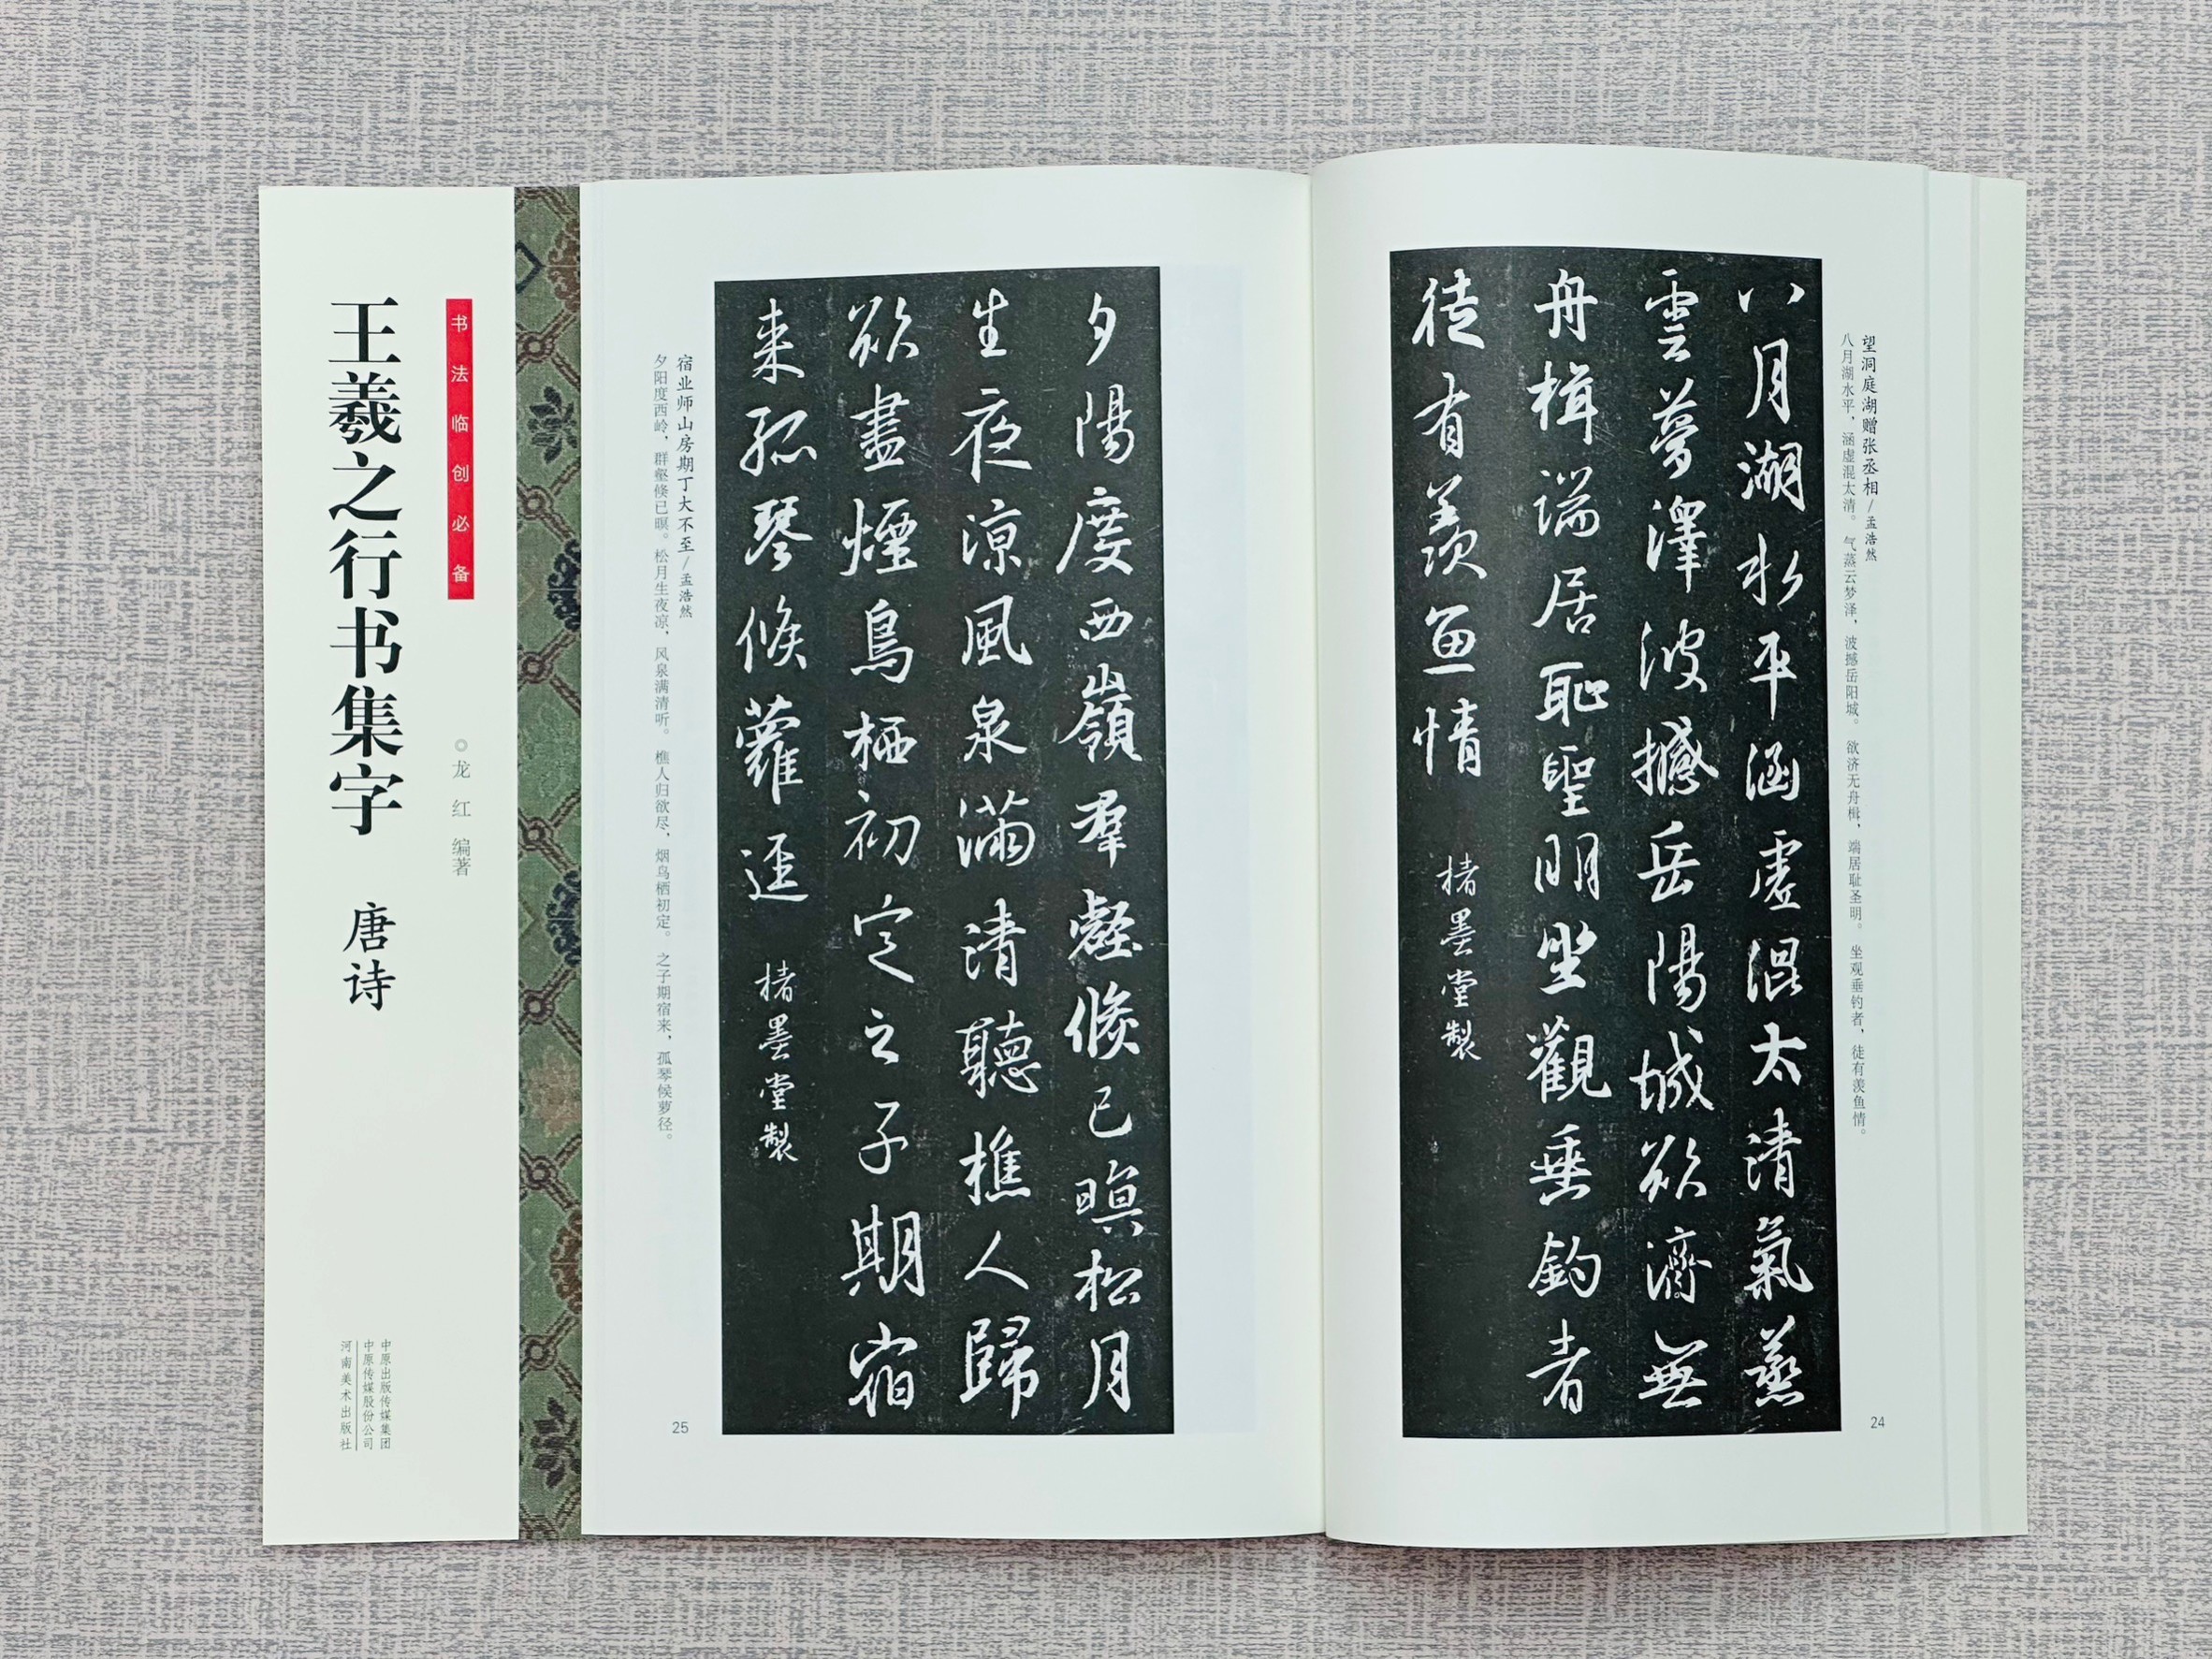 望洞庭湖赠张丞相/孟浩然
八月湖水平，涵虚混太清。气蒸云梦泽，波撼岳阳城。欲济无舟楫，端居耻圣明。坐观垂钓者，徒有羡鱼情。
八月湖水平涵虛混太清氣蒸
雲夢澤波撼岳陽城欲濟無
舟楫端居恥聖明坐觀垂釣者
徒有羨魚情
楮墨堂製
24
夕陽度西嶺羣壑倏已暝松月
生夜涼風泉滿清聽樵人歸
欲盡煙鳥栖初定之子期宿
来孤琴候蘿逕
楮墨堂製
宿业师山房期丁大不至/孟浩然
夕阳度西岭，群壑倏已暝。松月生夜凉，风泉满清听。樵人归欲尽，烟鸟栖初定。之子期宿来，孤琴候萝径。
25
书法临创必备
◎龙红 编著
王羲之行书集字 唐诗
中原出版传媒集团
中原传媒股份公司
河南美术出版社